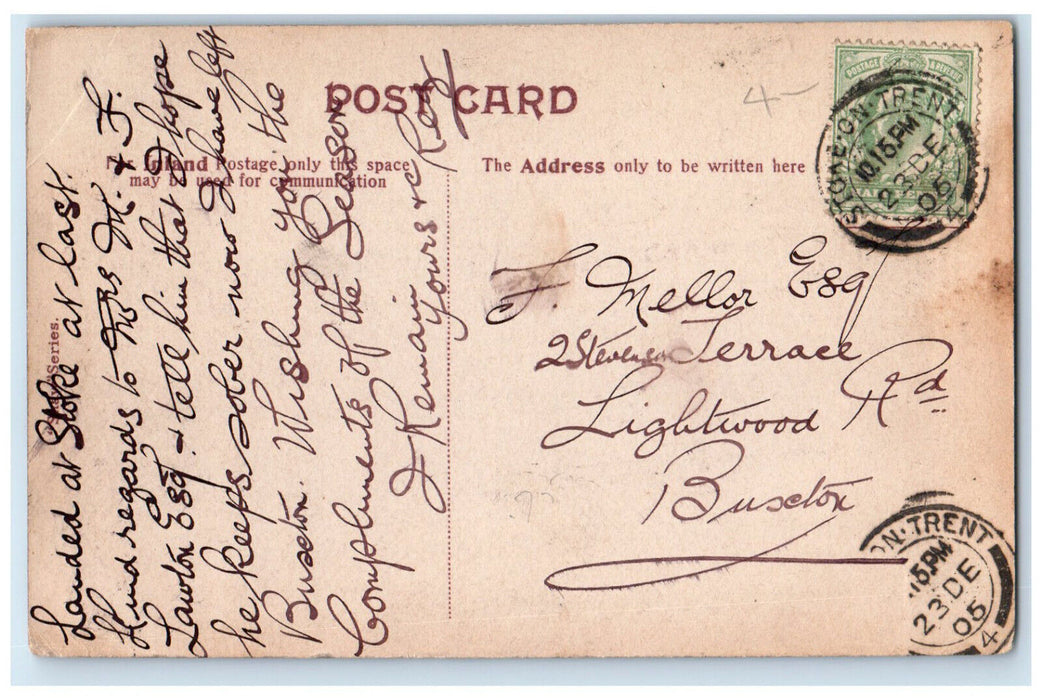 POST CARD
For Inland Postage only this space
may be used for communication
The Address only to be written here
Series.
Landed at Stoke at last.
Kind regards to Mrs M. & F.
Lawton Esq & tell him that I hope
he keeps sober now I have left
Buxton. Wishing you the
Compliments of the Season
I Remain
Yours &c Roy
F. Mellor Esq
2 Terrace
Lightwood Rd
Buxton
POSTAGE & REVENUE
STOKE-ON-TRENT
10.15 PM
23 DE
05
4
ON-TRENT
.15 PM
23 DE
05
4
4-